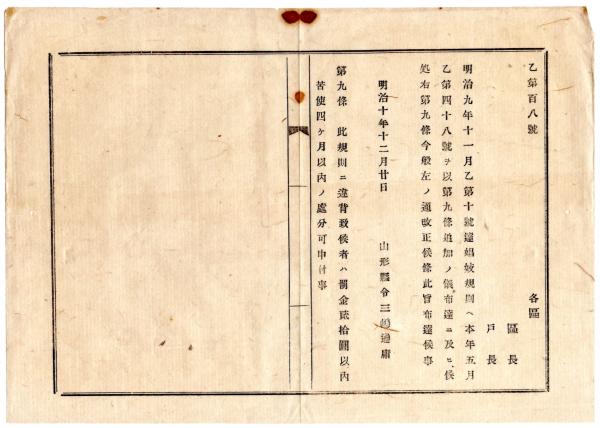 乙第百八號
各區
區長
戸長
明治九年十一月乙第十號達娼妓規則ヘ本年五月
乙第四十八號ヲ以第九條追加ノ儀布達ニ及ヒ候
処右第九條今般左ノ通改正候條此旨布達候事
明治十年十二月廿日
山形縣令三嶋通庸
第九條 此規則ニ違背致候者ハ罰金貳拾圓以內
苦使四ケ月以內ノ處分可申付事